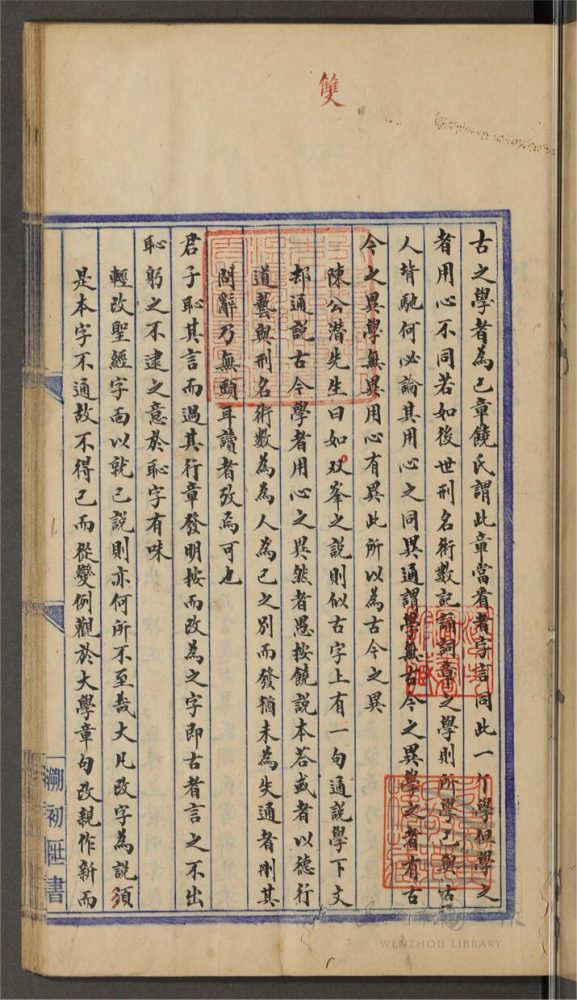 雙
古之學者為己章饒氏謂此章當看者字言同此一个學但學之
者用心不同若如後世刑名術數記誦詞章之學則所學已與古
人背馳何必論其用心之同異通謂學無古今之異學之者有古
今之異學無異用心有異此所以為古今之異
陳公潛先生曰如双峯之說則似古字上有一句通說學下文
却通說古今學者用心之異然者愚按饒說本荅或者以德行
道藝與刑名術數為為人為己之別而發猶未為失通者刪其
問辭乃無頭耳讀者攷焉可也
君子恥其言而過其行章發明按而改為之字即古者言之不出
恥躬之不逮之意於恥字有味
輕改聖經字面以就己說則亦何所不至哉大凡改字為說須
是本字不通故不得已而從變例觀於大學章句改親作新而
瀕初匨書
WENZHOU LIBRARY